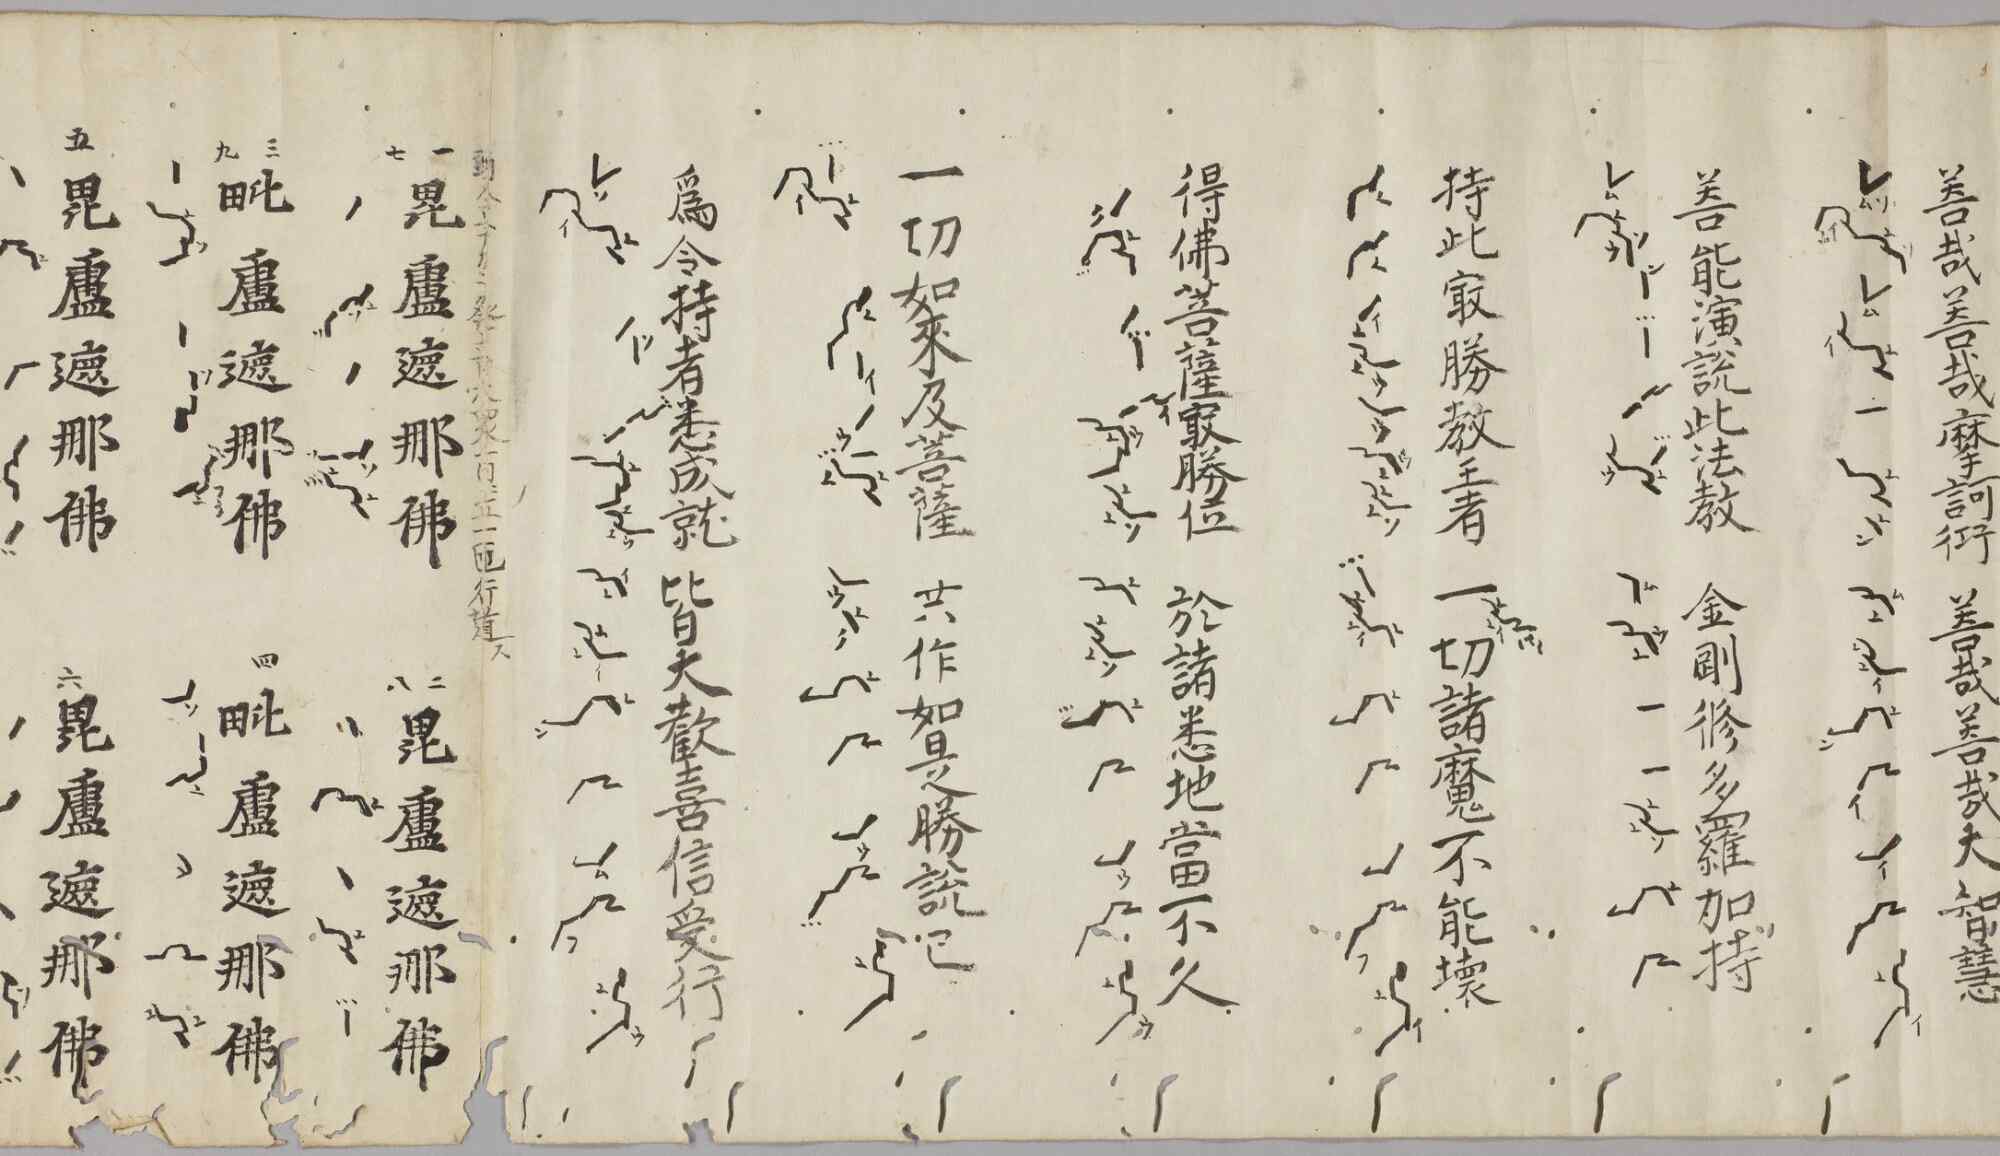 善哉善哉摩訶衍　善哉善哉大智慧
善能演説此法教　金剛修多羅加持
持此㝡勝教王者　一切諸魔不能壞
得佛菩薩㝡勝位　於諸悉地當不久
一切如來及菩薩　共作如是勝説已
爲令持者悉成就　皆大歡喜信受行
一　七　毘盧遮那佛　二　八　毘盧遮那佛
三　九　毗盧遮那佛　四　毗盧遮那佛
五　毘盧遮那佛　六　毘盧遮那佛